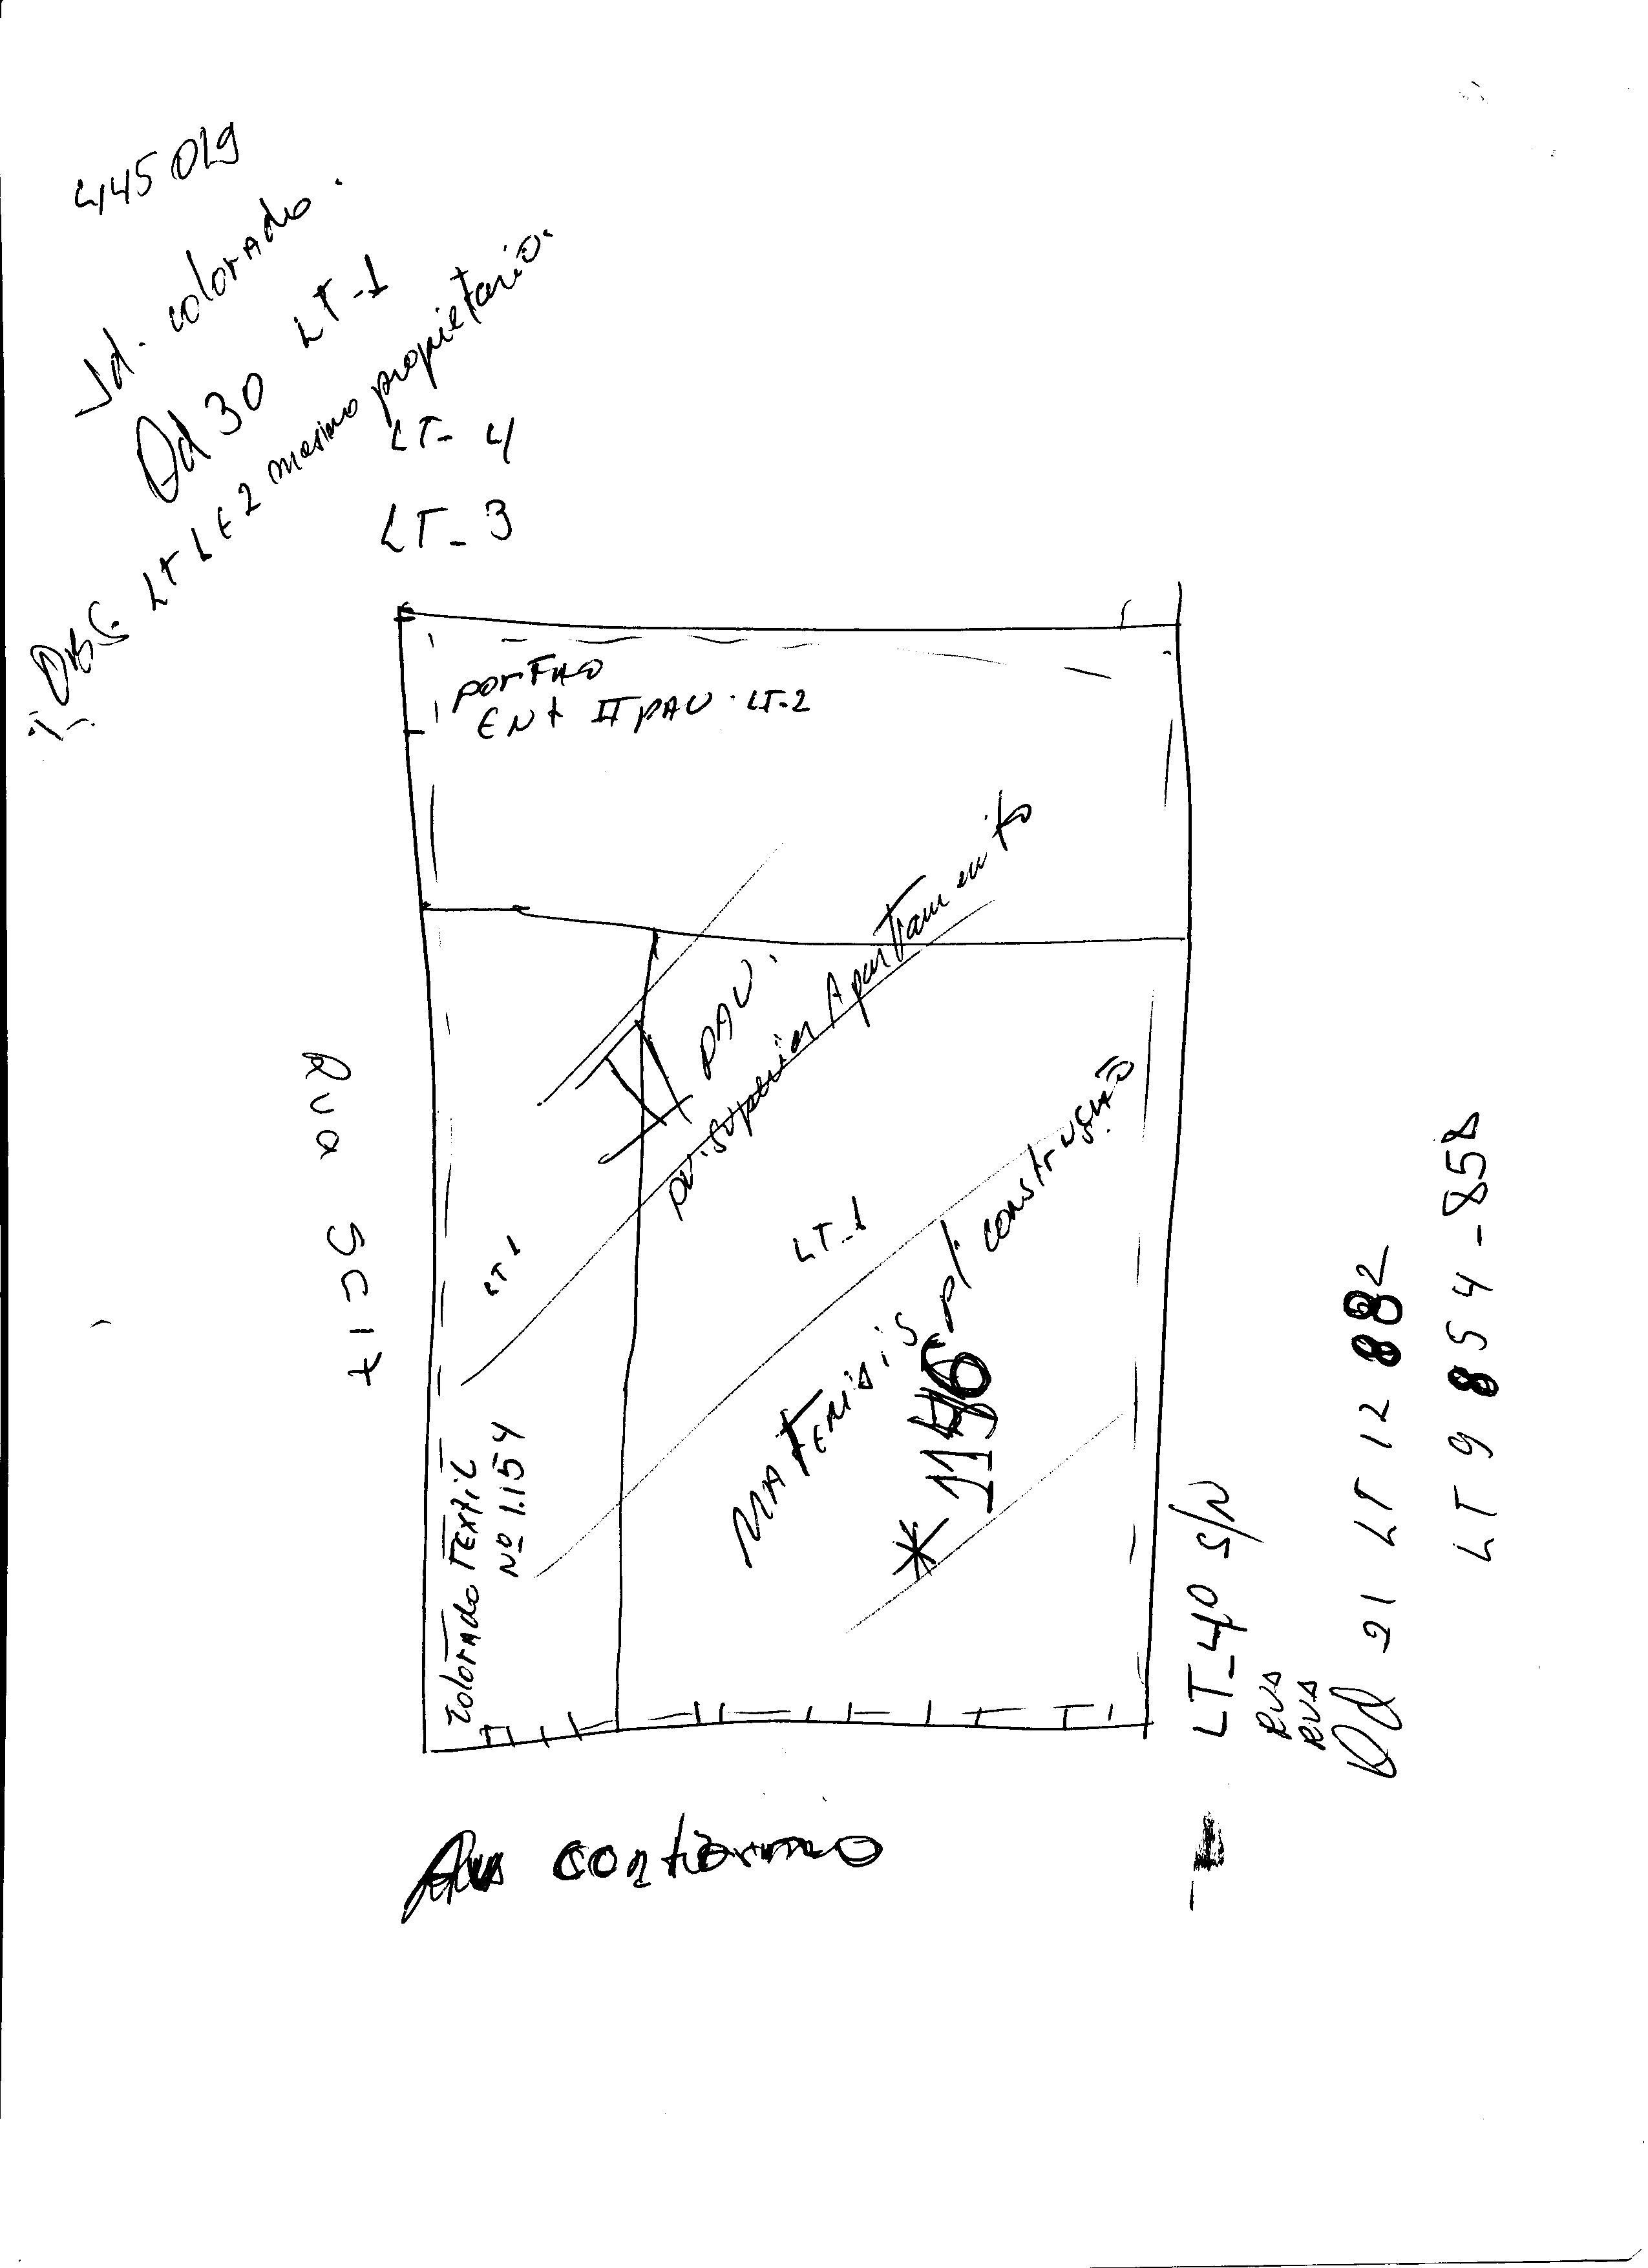 445019
Jd. colorado.
Qd 30 LT-1
OBS. LT 1 E 2 mesmo propietario.
LT- 4
LT- 3
portão
ENt II PAV. LT-2
II PAV.
pv. superior Apartamento
Rua
LT-1
LT-1
MATERiais p/ construção
* 1146
Colorado TExtil
Nº 1.154
LT-40 S/N
RUA
RUA
Qd 21 LT 12 882
LT 9 854-858
Av contôrno